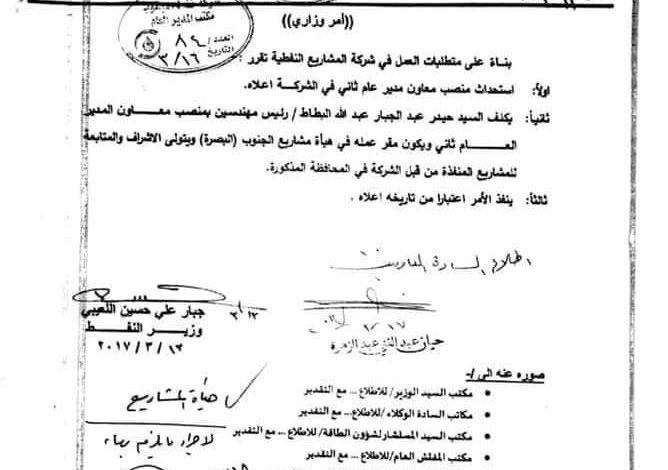 مكتب المدير العام
العدد/ ٨٤
التاريخ ٣/١٦
((أمر وزاري))
بناءً على متطلبات العمل في شركة المشاريع النفطية تقرر :
اولاً: استحداث منصب معاون مدير عام ثاني في الشركة اعلاه.
ثانياً: يكلف السيد حيدر عبد الجبار عبد الله البطاط / رئيس مهندسين بمنصب معاون المدير
العـــام ثاني ويكون مقر عمله في هيأة مشاريع الجنوب (البصرة) ويتولى الاشراف والمتابعة
للمشاريع المنفذة من قبل الشركة في المحافظة المذكورة.
ثالثاً: ينفذ الأمر اعتبارا من تاريخه اعلاه .
اطلاع السادة المعاونين
٣/١٣
جبار علي حسين اللعيبي
وزيـر النفـط
٢٠١٧/٣/١٣
٣/١٧
حيان عبد الغني عبد الزهرة
صوره عنه الى /-
• مكتب السيد الوزير/للاطلاع... مع التقدير
• مكاتب السادة الوكلاء/للاطلاع... مع التقدير
• مكتب السيد المستشار لشؤون الطاقة/للاطلاع... مع التقدير
• مكتب المفتش العام/للاطلاع ... مع التقدير
هيأة المشاريع
لاجراء مايلزم رجاءً